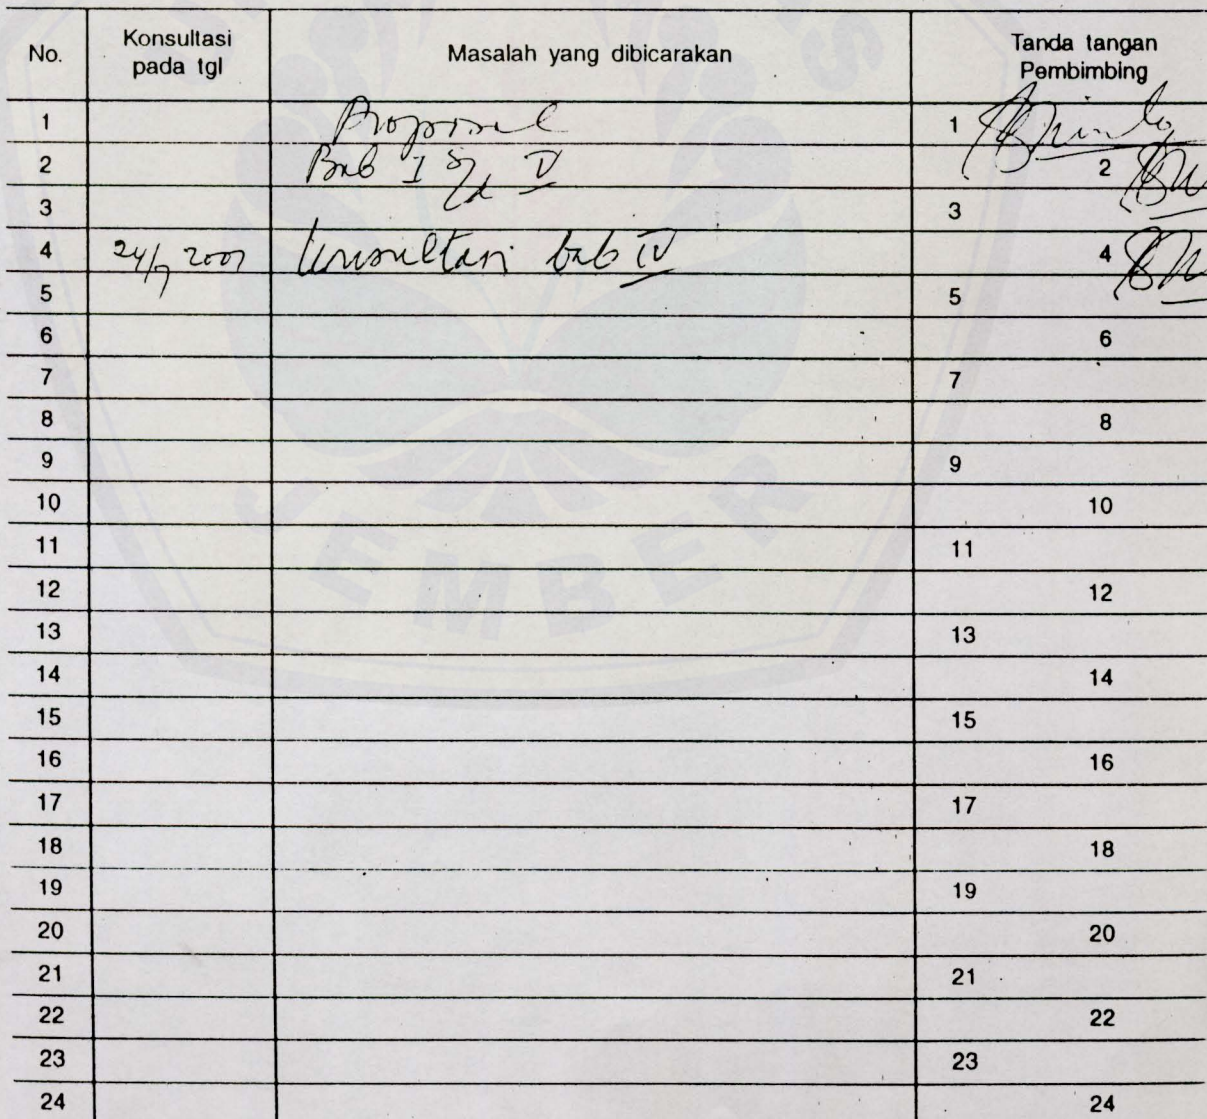 No. Konsultasi pada tgl Masalah yang dibicarakan Tanda tangan Pembimbing
1 Proposal 1
2 Bab I s/d V 2
3 3
4 24/7 2001 konsultasi bab IV 4
5 5
6 6
7 7
8 8
9 9
10 10
11 11
12 12
13 13
14 14
15 15
16 16
17 17
18 18
19 19
20 20
21 21
22 22
23 23
24 24
JEMBER